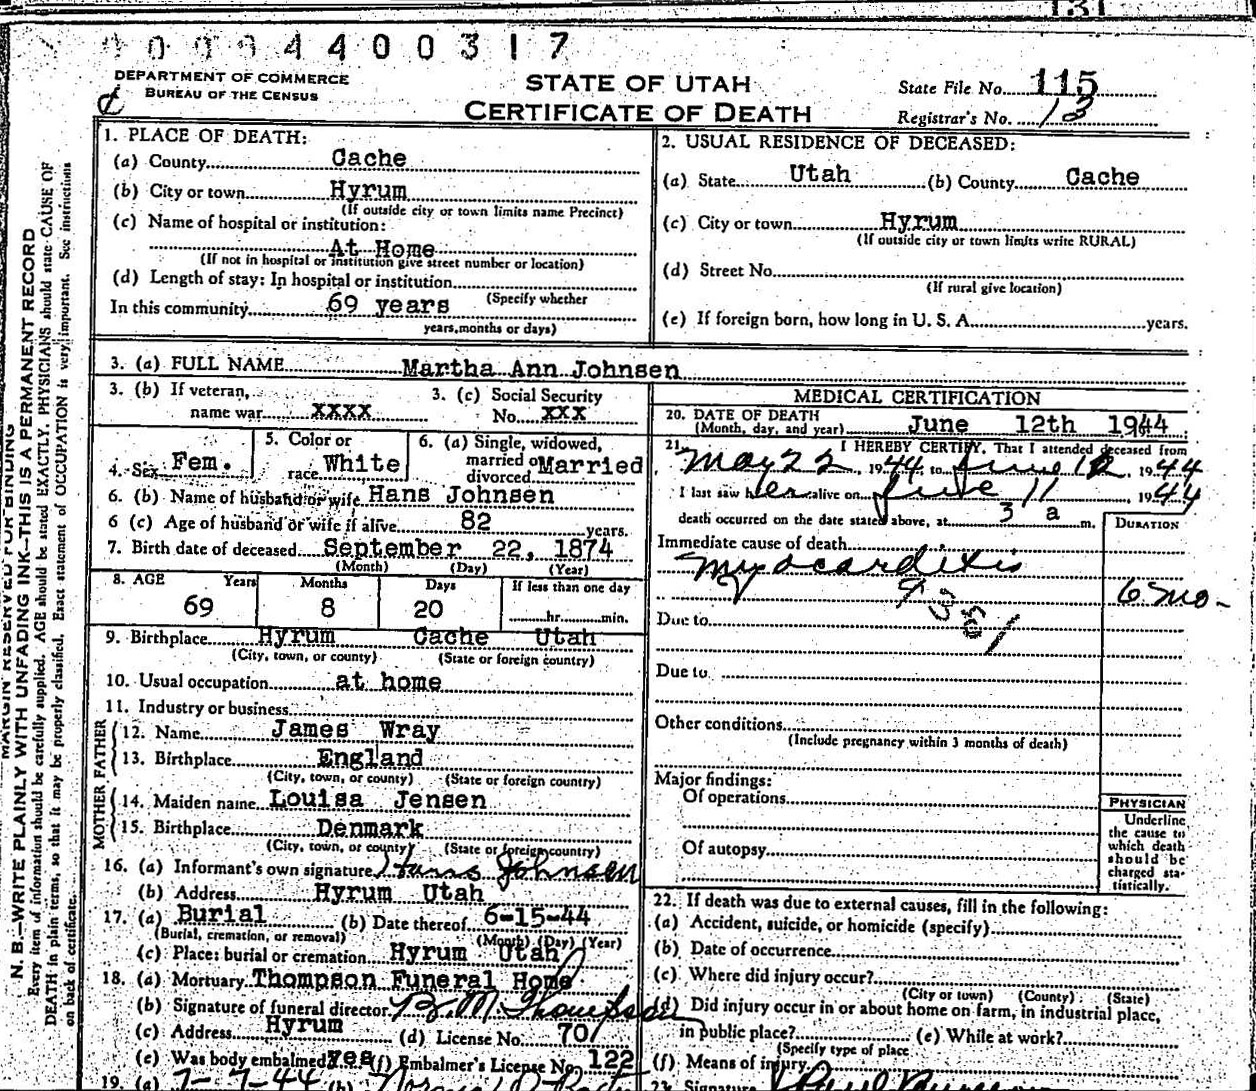 131
0 0 0 9 4 4 0 0 3 1 7
DEPARTMENT OF COMMERCE
BUREAU OF THE CENSUS
STATE OF UTAH
CERTIFICATE OF DEATH
State File No. 115
Registrar's No. 13
MARGIN RESERVED FOR BINDING
N. B.—WRITE PLAINLY WITH UNFADING INK—THIS IS A PERMANENT RECORD
Every item of information should be carefully supplied. AGE should be stated EXACTLY. PHYSICIANS should state CAUSE OF
DEATH in plain terms, so that it may be properly classified. Exact statement of OCCUPATION is very important. See instructions
on back of certificate.
1. PLACE OF DEATH:
(a) County Cache
(b) City or town Hyrum
(If outside city or town limits name Precinct)
(c) Name of hospital or institution:
At Home
(If not in hospital or institution give street number or location)
(d) Length of stay: In hospital or institution
(Specify whether
In this community 69 years
years, months or days)
2. USUAL RESIDENCE OF DECEASED:
(a) State Utah (b) County Cache
(c) City or town Hyrum
(If outside city or town limits write RURAL)
(d) Street No.
(If rural give location)
(e) If foreign born, how long in U. S. A. years.
3. (a) FULL NAME Martha Ann Johnsen
3. (b) If veteran,
name war xxxx
3. (c) Social Security
No. xxx
4. Sex Fem.
5. Color or
race White
6. (a) Single, widowed,
married or Married
divorced
6. (b) Name of husband or wife Hans Johnsen
6 (c) Age of husband or wife if alive 82 years.
7. Birth date of deceased September 22, 1874
(Month) (Day) (Year)
8. AGE Years Months Days If less than one day
69 8 20 hr. min.
9. Birthplace Hyrum Cache Utah
(City, town, or county) (State or foreign country)
10. Usual occupation at home
11. Industry or business
FATHER
12. Name James Wray
13. Birthplace England
(City, town, or county) (State or foreign country)
MOTHER
14. Maiden name Louisa Jensen
15. Birthplace Denmark
(City, town, or county) (State or foreign country)
16. (a) Informant's own signature Hans Johnsen
(b) Address Hyrum Utah
17. (a) Burial (b) Date thereof 6-15-44
(Burial, cremation, or removal) (Month) (Day) (Year)
(c) Place: burial or cremation Hyrum Utah
18. (a) Mortuary Thompson Funeral Home
(b) Signature of funeral director B. M. Thompson
(c) Address Hyrum (d) License No. 70
(e) Was body embalmed? yea (f) Embalmer's License No. 122
19. (a) 7-7-44 (b)
MEDICAL CERTIFICATION
20. DATE OF DEATH
(Month, day, and year) June 12th 1944
21. I HEREBY CERTIFY, That I attended deceased from
May 22, 1944 to June 12, 1944
I last saw her alive on June 11, 1944
death occurred on the date stated above, at 3 a m.
DURATION
Immediate cause of death
Myocarditis
6 mo-
Due to
Due to
Other conditions
(Include pregnancy within 3 months of death)
Major findings:
Of operations
Of autopsy
PHYSICIAN
Underline
the cause to
which death
should be
charged sta-
tistically.
22. If death was due to external causes, fill in the following:
(a) Accident, suicide, or homicide (specify)
(b) Date of occurrence
(c) Where did injury occur?
(City or town) (County) (State)
(d) Did injury occur in or about home on farm, in industrial place,
in public place? (e) While at work?
(Specify type of place
(f) Means of injury
23. Signature